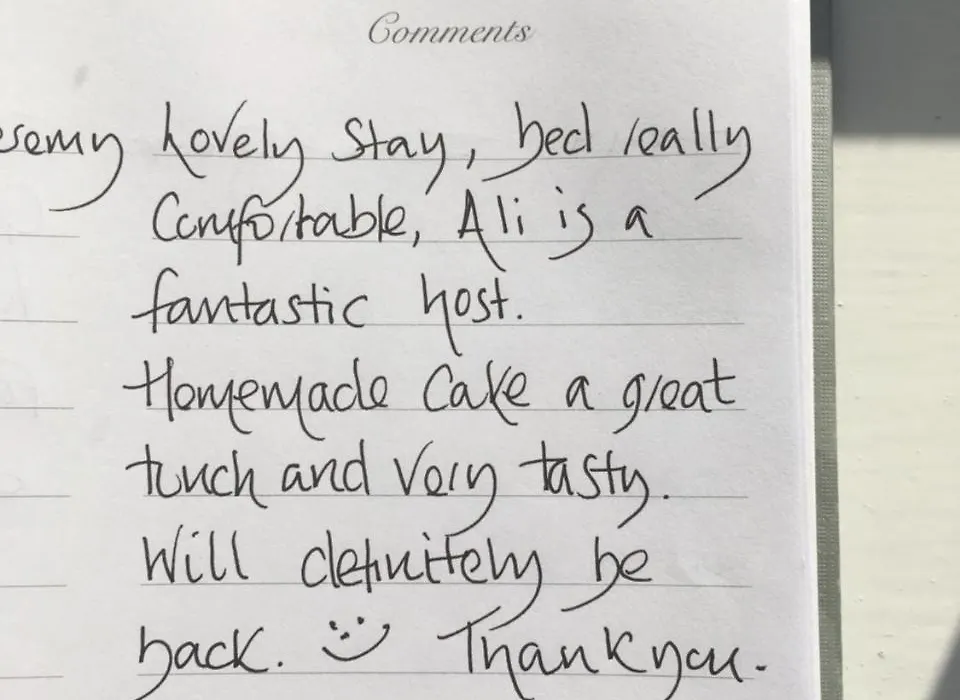 Comments
Lovely Stay, bed really
Comfortable, Ali is a
fantastic host.
Homemade Cake a great
tuch and Very tasty.
Will definitely be
back. Thankyou.